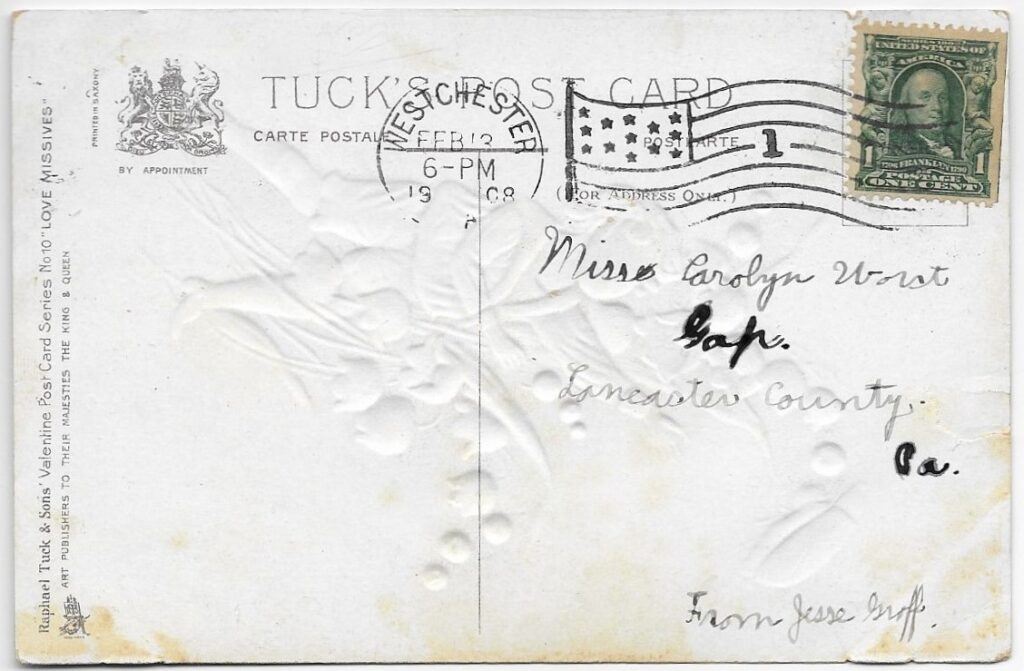 TUCK'S POST CARD
CARTE POSTALE
POSTKARTE
(FOR ADDRESS ONLY.)
PRINTED IN SAXONY
BY APPOINTMENT
Raphael Tuck & Sons' Valentine Post Card Series No 10 "LOVE MISSIVES"
ART PUBLISHERS TO THEIR MAJESTIES THE KING & QUEEN
WESTCHESTER
FEB 13
6-PM
19 08
1
UNITED STATES OF
AMERICA
1 FRANKLIN 1
POSTAGE
ONE CENT
Misse Carolyn Worst
Gap.
Lancaster County.
Pa.
From Jesse Groff.